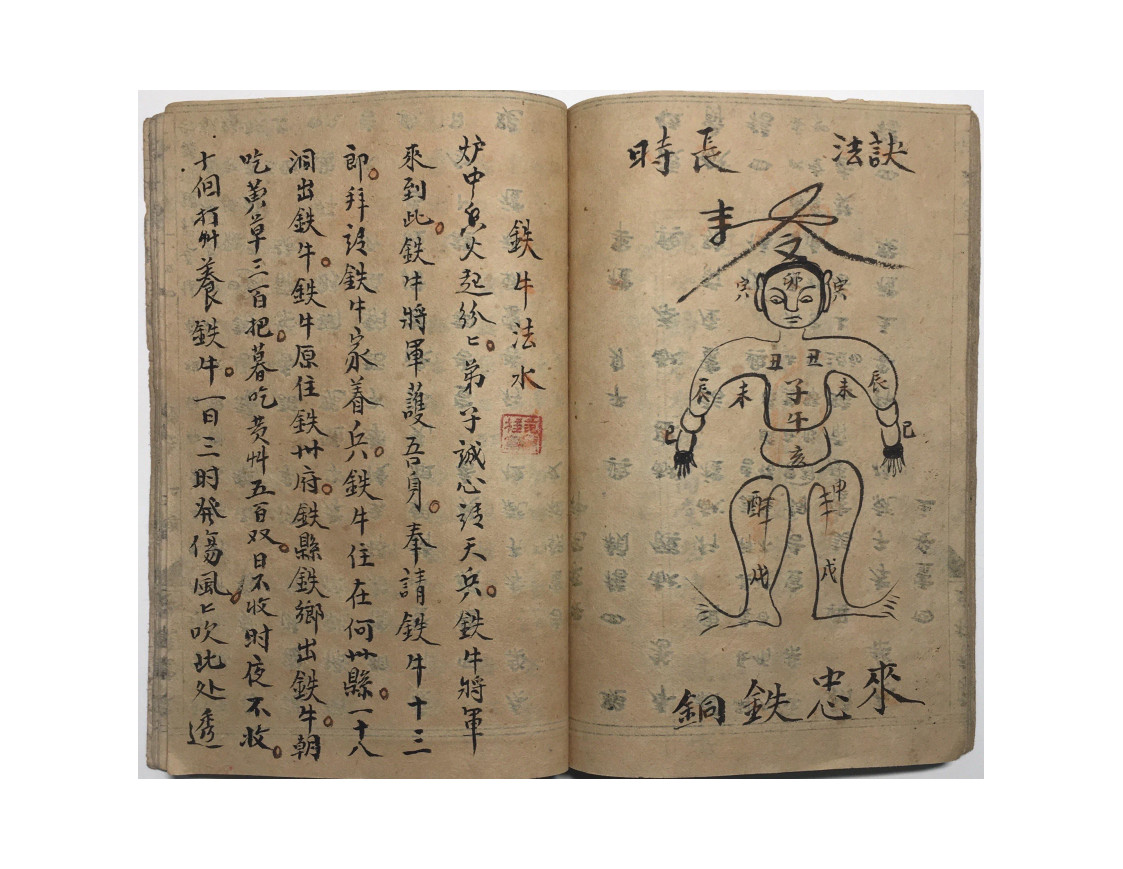 時長 法訣
卯
寅 寅
丑 丑
辰 未 未 辰
子
午
巳 巳
亥
酉 申
戌 戌
銅鉄忠來
鉄牛法水
炉中火起紛〻。弟子誠心請天兵。鉄牛將軍
來到此。鉄牛將軍護吾身。奉請鉄牛十三
郎。拜請鉄牛家養兵。鉄牛住在何州縣。一十八
洞出鉄牛。鉄牛原住鉄州府。鉄縣鉄鄉出鉄牛。朝
吃黃草三百把。暮吃黃艸五百双。日不收时夜不收。
十個打艸養鉄牛。一日三时發傷風。〻吹此处透